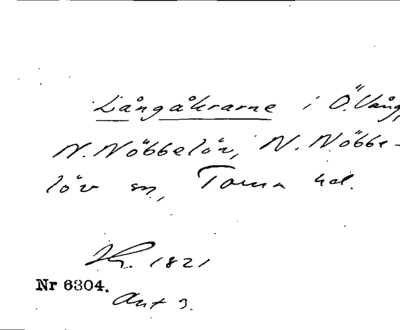 Långåkrarne i Ö. Vång,
N. Nöbbelöv, N. Nöbbe-
löv sn, Torna hd.
1821
Nr 6304.
Akt 3.